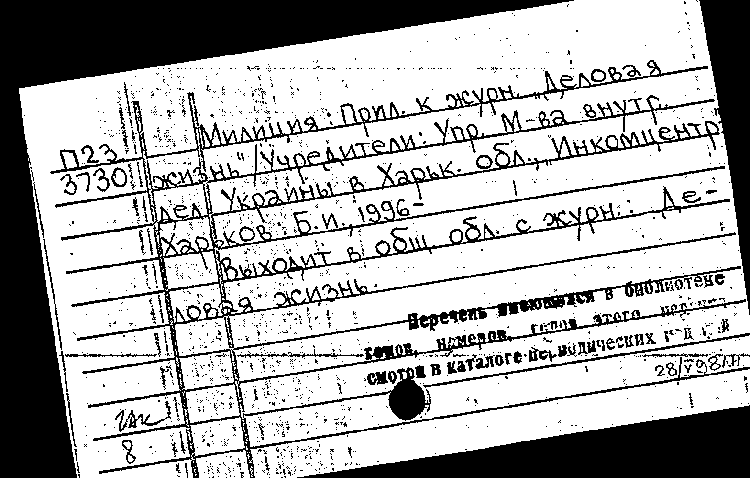 П23
3730
Милиция: Прил. к журн. „Деловая
жизнь"/Учредители: Упр. М-ва внутр.
дел Украины в Харьк. обл., „Инкомцентр"
Харьков: Б.и., 1996-
Выходит в общ. обл. с журн.: Де-
ловая жизнь.
Перечень имеющихся в библиотеке
томов, номеров, годов этого
смотри в каталоге периодических
28/V98
8